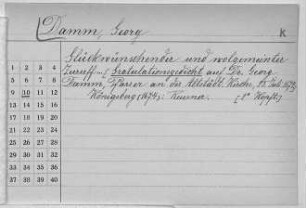 Damm, Georg
K
Glückwünschender und wolgemeinter
Zuruff...(Gratulationsgedicht auf Dr. Georg
Damm, Pfarrer an der Altstädt. Kirche, 12. Juli 1674)
Königsberg (1674): Reusner.
1 9 17 25 33
2 10 18 26 34
3 11 19 27 35
4 12 20 28 36
5 13 21 29 37
6 14 22 30 38
7 15 23 31 39
8 16 24 32 40